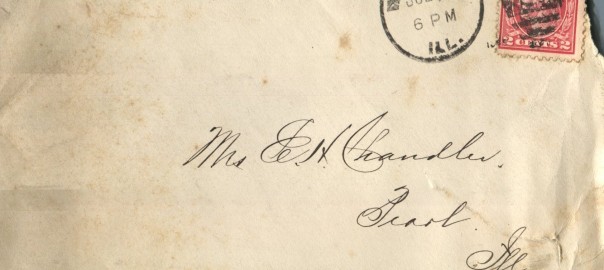 JUL
6 PM
ILL.
2 CENTS 2
Mrs E. H. Chandler.
Pearl.
Ill